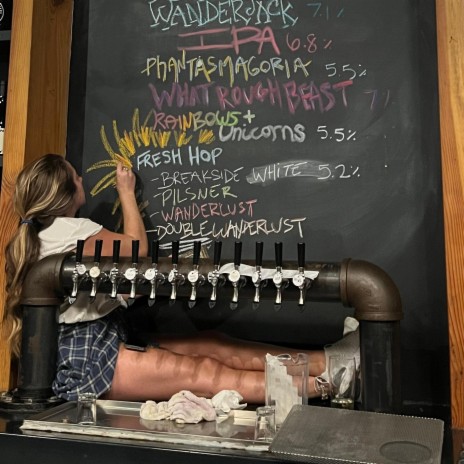 WANDERJACK 7.1%
IPA 6.8%
PHANTASMAGORIA 5.5%
WHAT ROUGH BEAST 7.
RAINBOWS +
UNICORNS 5.5%
FRESH HOP
- BREAKSIDE WHITE 5.2%
- PILSNER
- WANDERLUST
- DOUBLE WANDERLUST